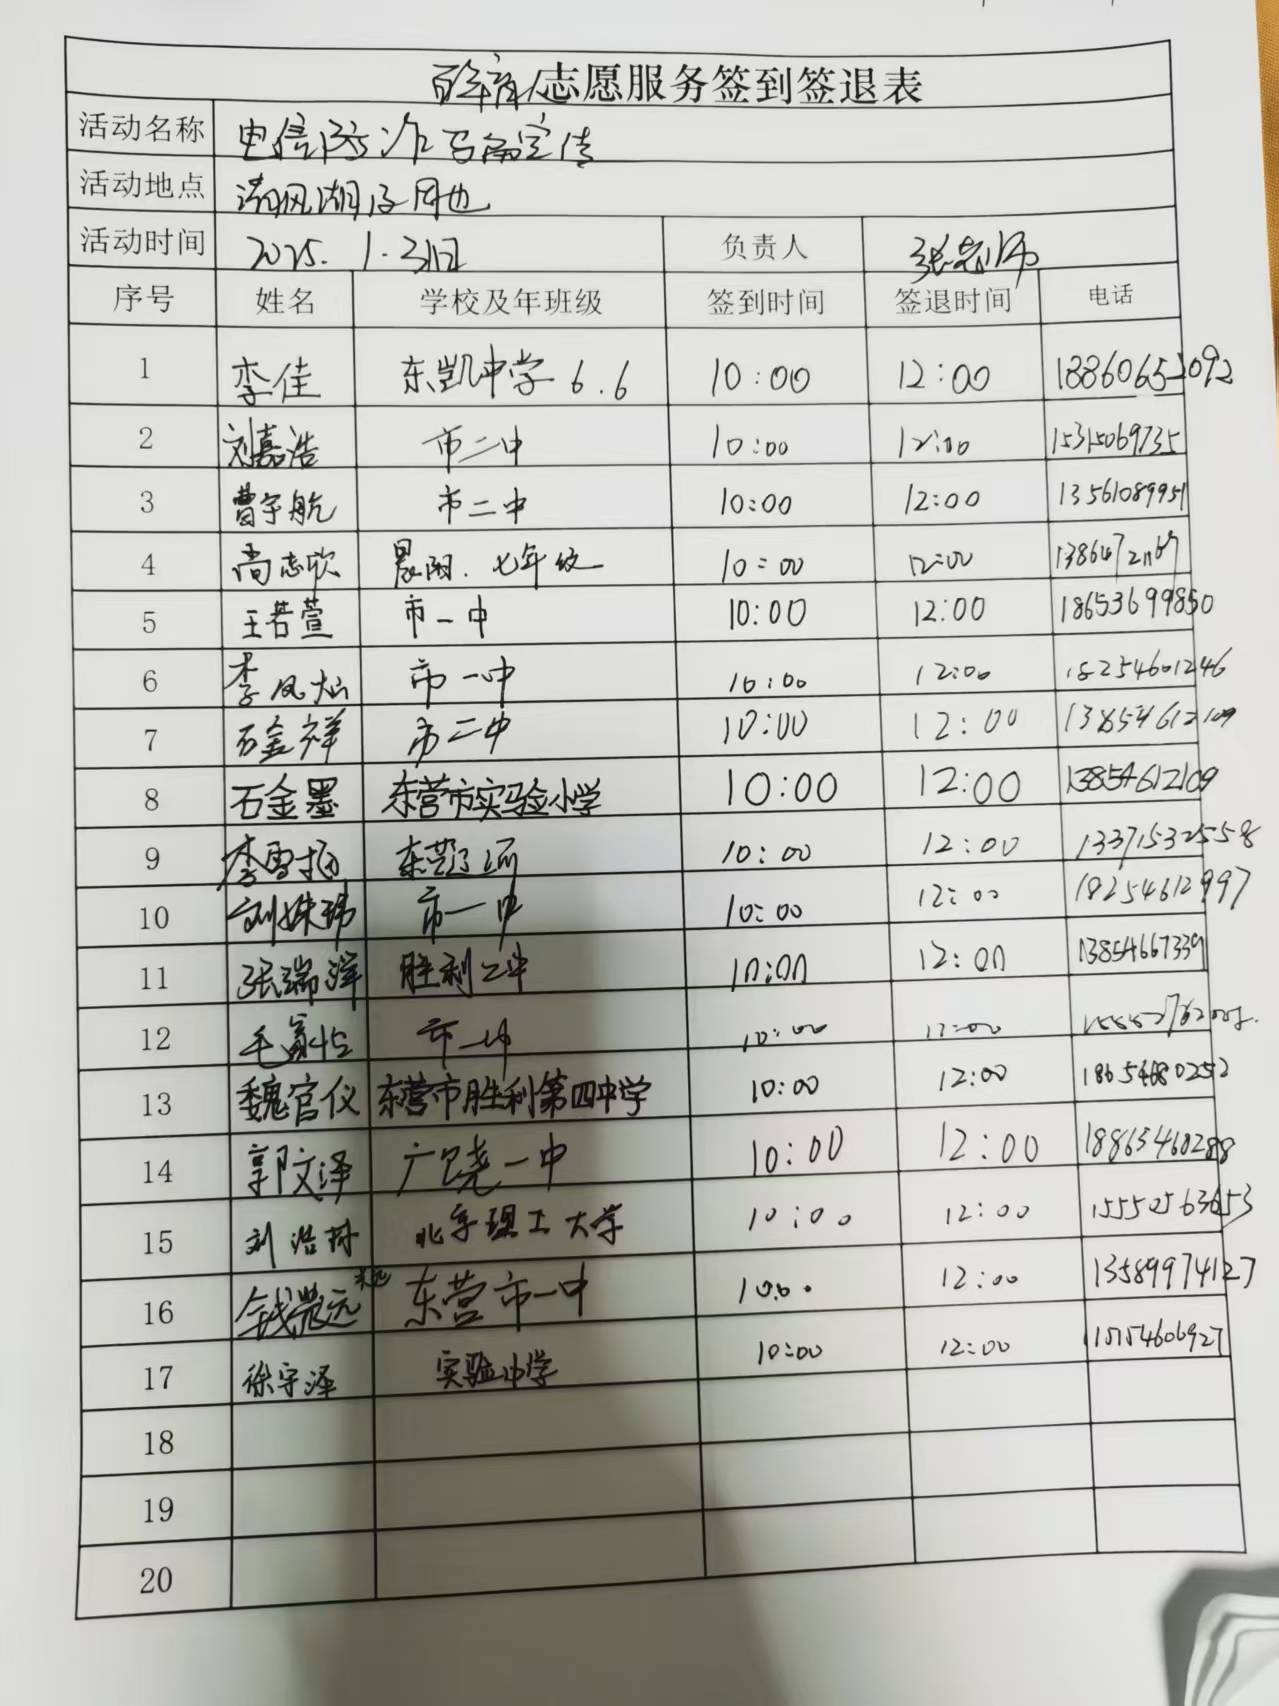 志愿服务签到签退表
活动名称 电信防诈 宣传
活动地点 清风湖及周边
活动时间 2025.1.31日 负责人 张老师
序号 姓名 学校及年班级 签到时间 签退时间 电话
1 李佳 东凯中学6.6 10:00 12:00 18860652092
2 刘嘉浩 市二中 10:00 12:00 15315069735
3 曹宇航 市二中 10:00 12:00 13561089951
4 尚志欣 晨阳.七年级 10:00 12:00
5 王若萱 市一中 10:00 12:00 18653699850
6 李凤灿 市一中 10:00 12:00 18254601246
7 石金祥 市二中 10:00 12:00 13854612109
8 石金墨 东营市实验小学 10:00 12:00 13854612109
9 10:00 12:00 13371532558
10 市一中 10:00 12:00 18254612997
11 张瑞洋 胜利二中 10:00 12:00 13854667339
12 10:00 12:00
13 魏官仪 东营市胜利第四中学 10:00 12:00 18654680252
14 郭文泽 广饶一中 10:00 12:00 18865460288
15 北京理工大学 10:00 12:00 15550563653
16 东营市一中 12:00 13589974127
17 徐宇泽 实验中学 10:00 12:00 15154606927
18
19
20